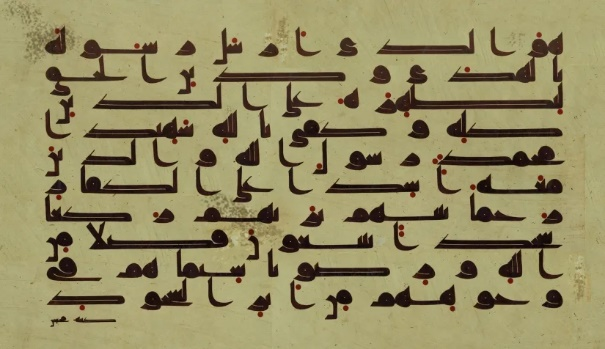 هو الذي ارسل رسوله
بالهدى ودين الحق
ليظهره على الدين
كله وكفى بالله شهيدا
محمد رسول الله والذين
معه اشدا على الكفار
رحما بينهم تريهم ركعا
سجدا يبتغون فضلا من
الله ورضونا سيماهم في
وجوههم من اثر السجود